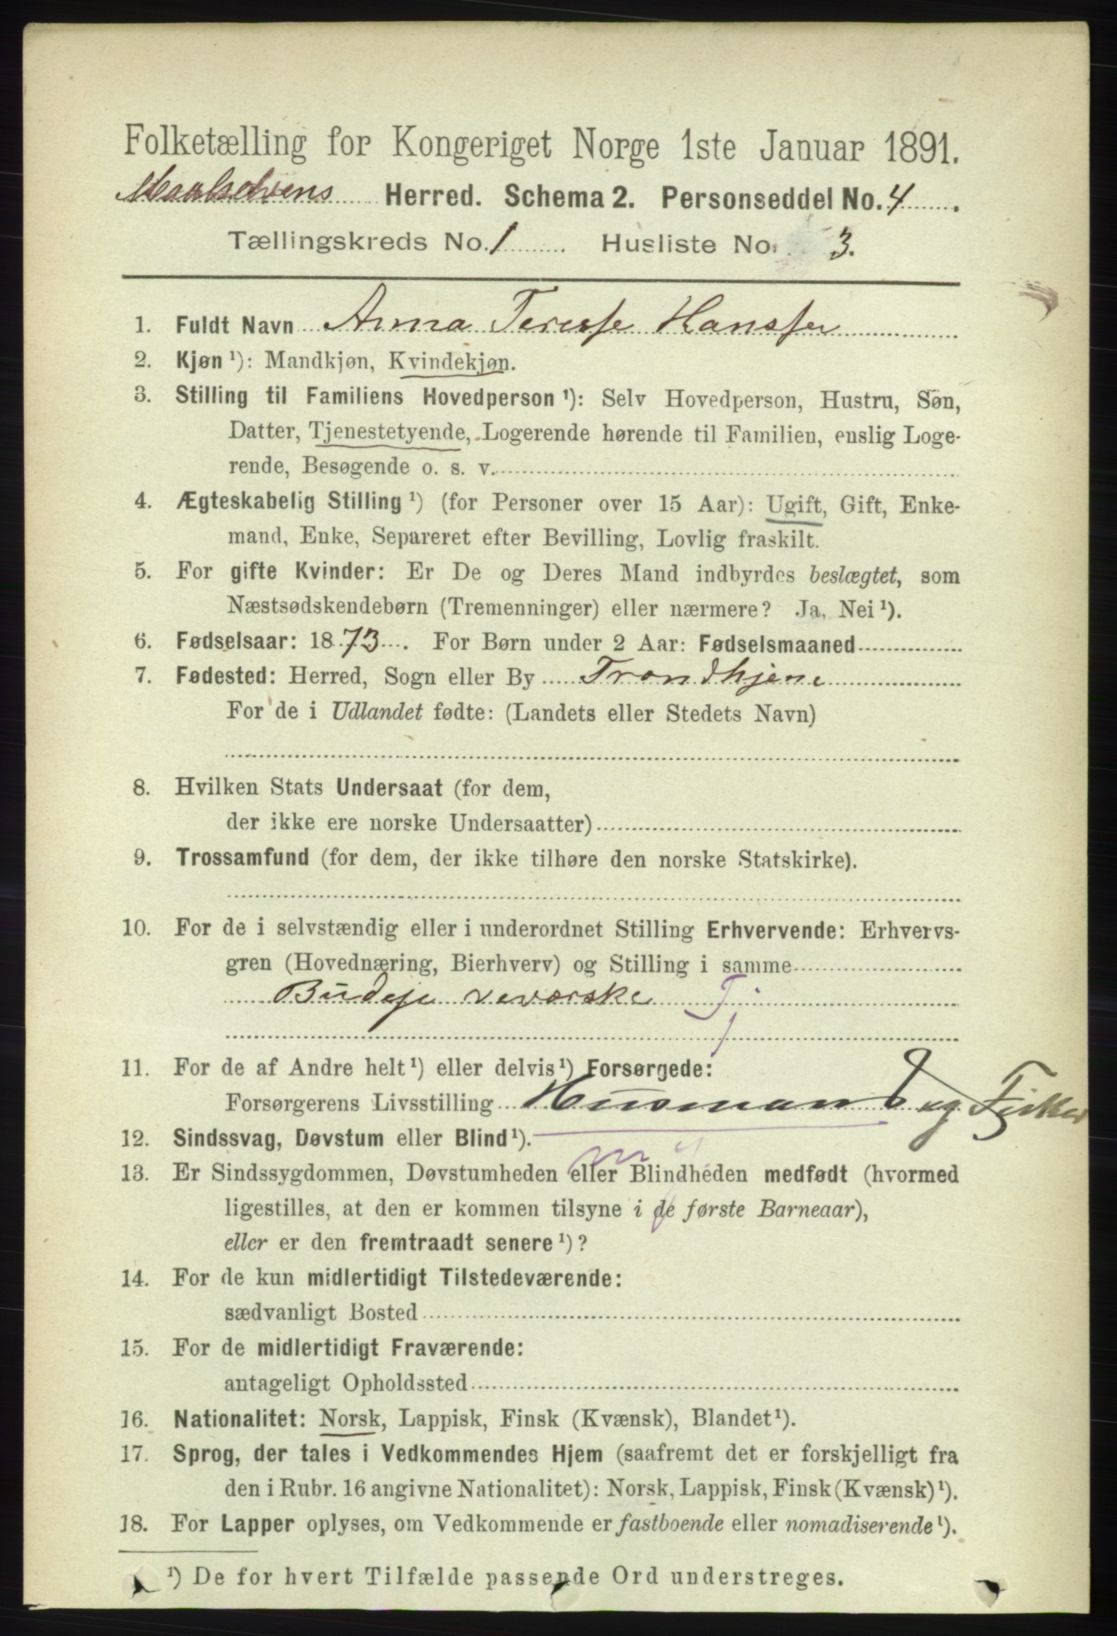 Folketælling for Kongeriget Norge 1ste Januar 1891.
Maalselvens Herred. Schema 2. Personseddel No. 4.
Tællingskreds No. 1 Husliste No. 3.
1. Fuldt Navn Anna Terese Hansen
2. Kjøn ¹): Mandkjøn, Kvindekjøn.
3. Stilling til Familiens Hovedperson ¹): Selv Hovedperson, Hustru, Søn,
Datter, Tjenestetyende, Logerende hørende til Familien, enslig Loge-
rende, Besøgende o. s. v.
4. Ægteskabelig Stilling ¹) (for Personer over 15 Aar): Ugift, Gift, Enke-
mand, Enke, Separeret efter Bevilling, Lovlig fraskilt.
5. For gifte Kvinder: Er De og Deres Mand indbyrdes beslægtet, som
Næstsødskendebørn (Tremenninger) eller nærmere? Ja, Nei ¹).
6. Fødselsaar: 1873. For Børn under 2 Aar: Fødselsmaaned
7. Fødested: Herred, Sogn eller By Trondhjem
For de i Udlandet fødte: (Landets eller Stedets Navn)
8. Hvilken Stats Undersaat (for dem,
der ikke ere norske Undersaatter)
9. Trossamfund (for dem, der ikke tilhøre den norske Statskirke).
10. For de i selvstændig eller i underordnet Stilling Erhvervende: Erhvervs-
gren (Hovednæring, Bierhverv) og Stilling i samme
Budeje veverske Tj
11. For de af Andre helt ¹) eller delvis ¹) Forsørgede:
Forsørgerens Livsstilling Husmand og Fisker
12. Sindssvag, Døvstum eller Blind ¹).
13. Er Sindssygdommen, Døvstumheden eller Blindheden medfødt (hvormed
ligestilles, at den er kommen tilsyne i de første Barneaar),
eller er den fremtraadt senere ¹)?
14. For de kun midlertidigt Tilstedeværende:
sædvanligt Bosted
15. For de midlertidigt Fraværende:
antageligt Opholdssted
16. Nationalitet: Norsk, Lappisk, Finsk (Kvænsk), Blandet ¹).
17. Sprog, der tales i Vedkommendes Hjem (saafremt det er forskjelligt fra
den i Rubr. 16 angivne Nationalitet): Norsk, Lappisk, Finsk (Kvænsk) ¹).
18. For Lapper oplyses, om Vedkommende er fastboende eller nomadiserende ¹).
¹) De for hvert Tilfælde passende Ord understreges.